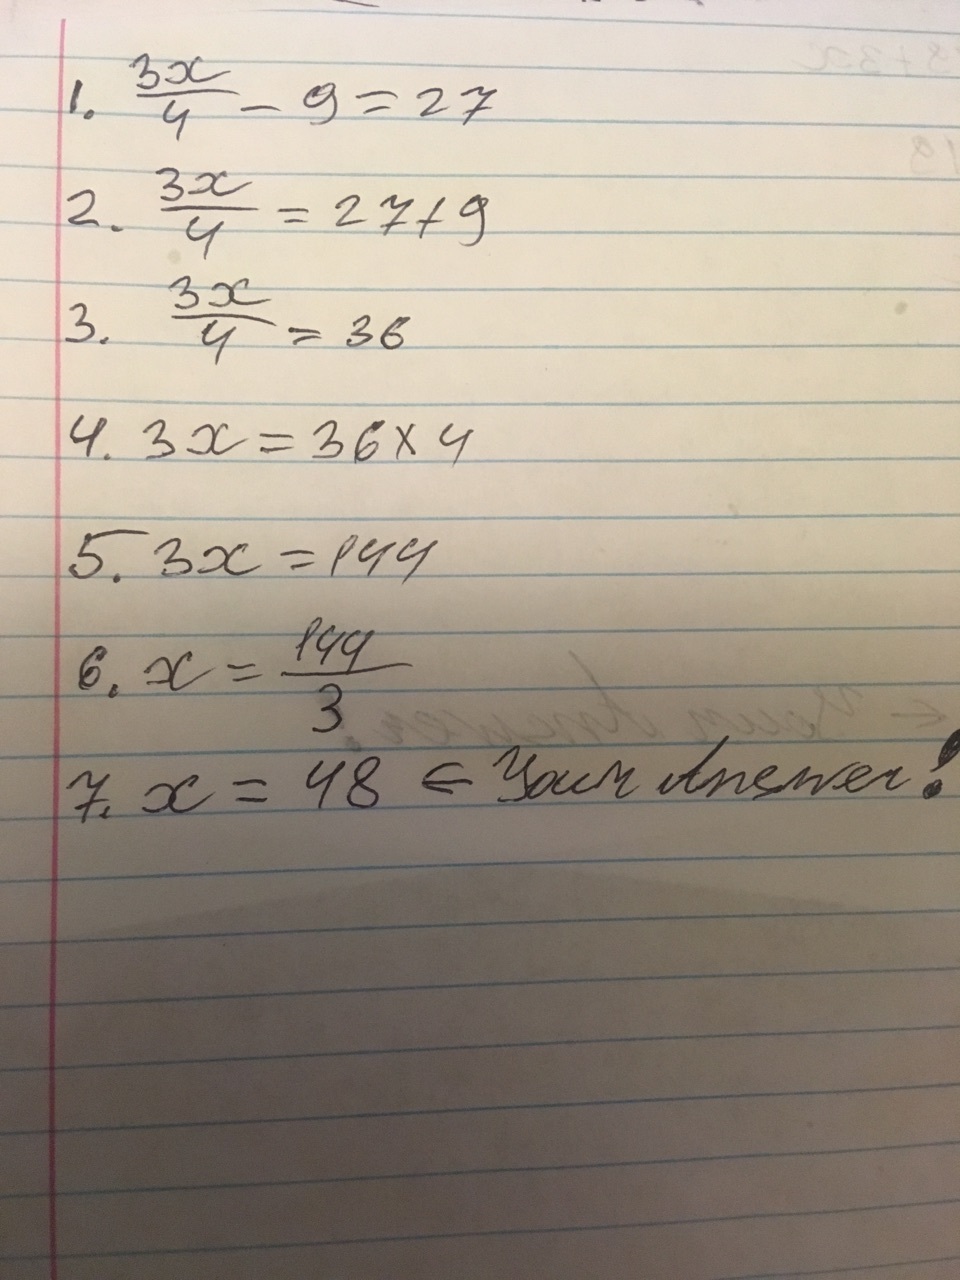 1. 3x/4 - 9 = 27
2. 3x/4 = 27+9
3. 3x/4 = 36
4. 3x = 36×4
5. 3x = 144
6. x = 144/3
7. x = 48 ← Your Answer!